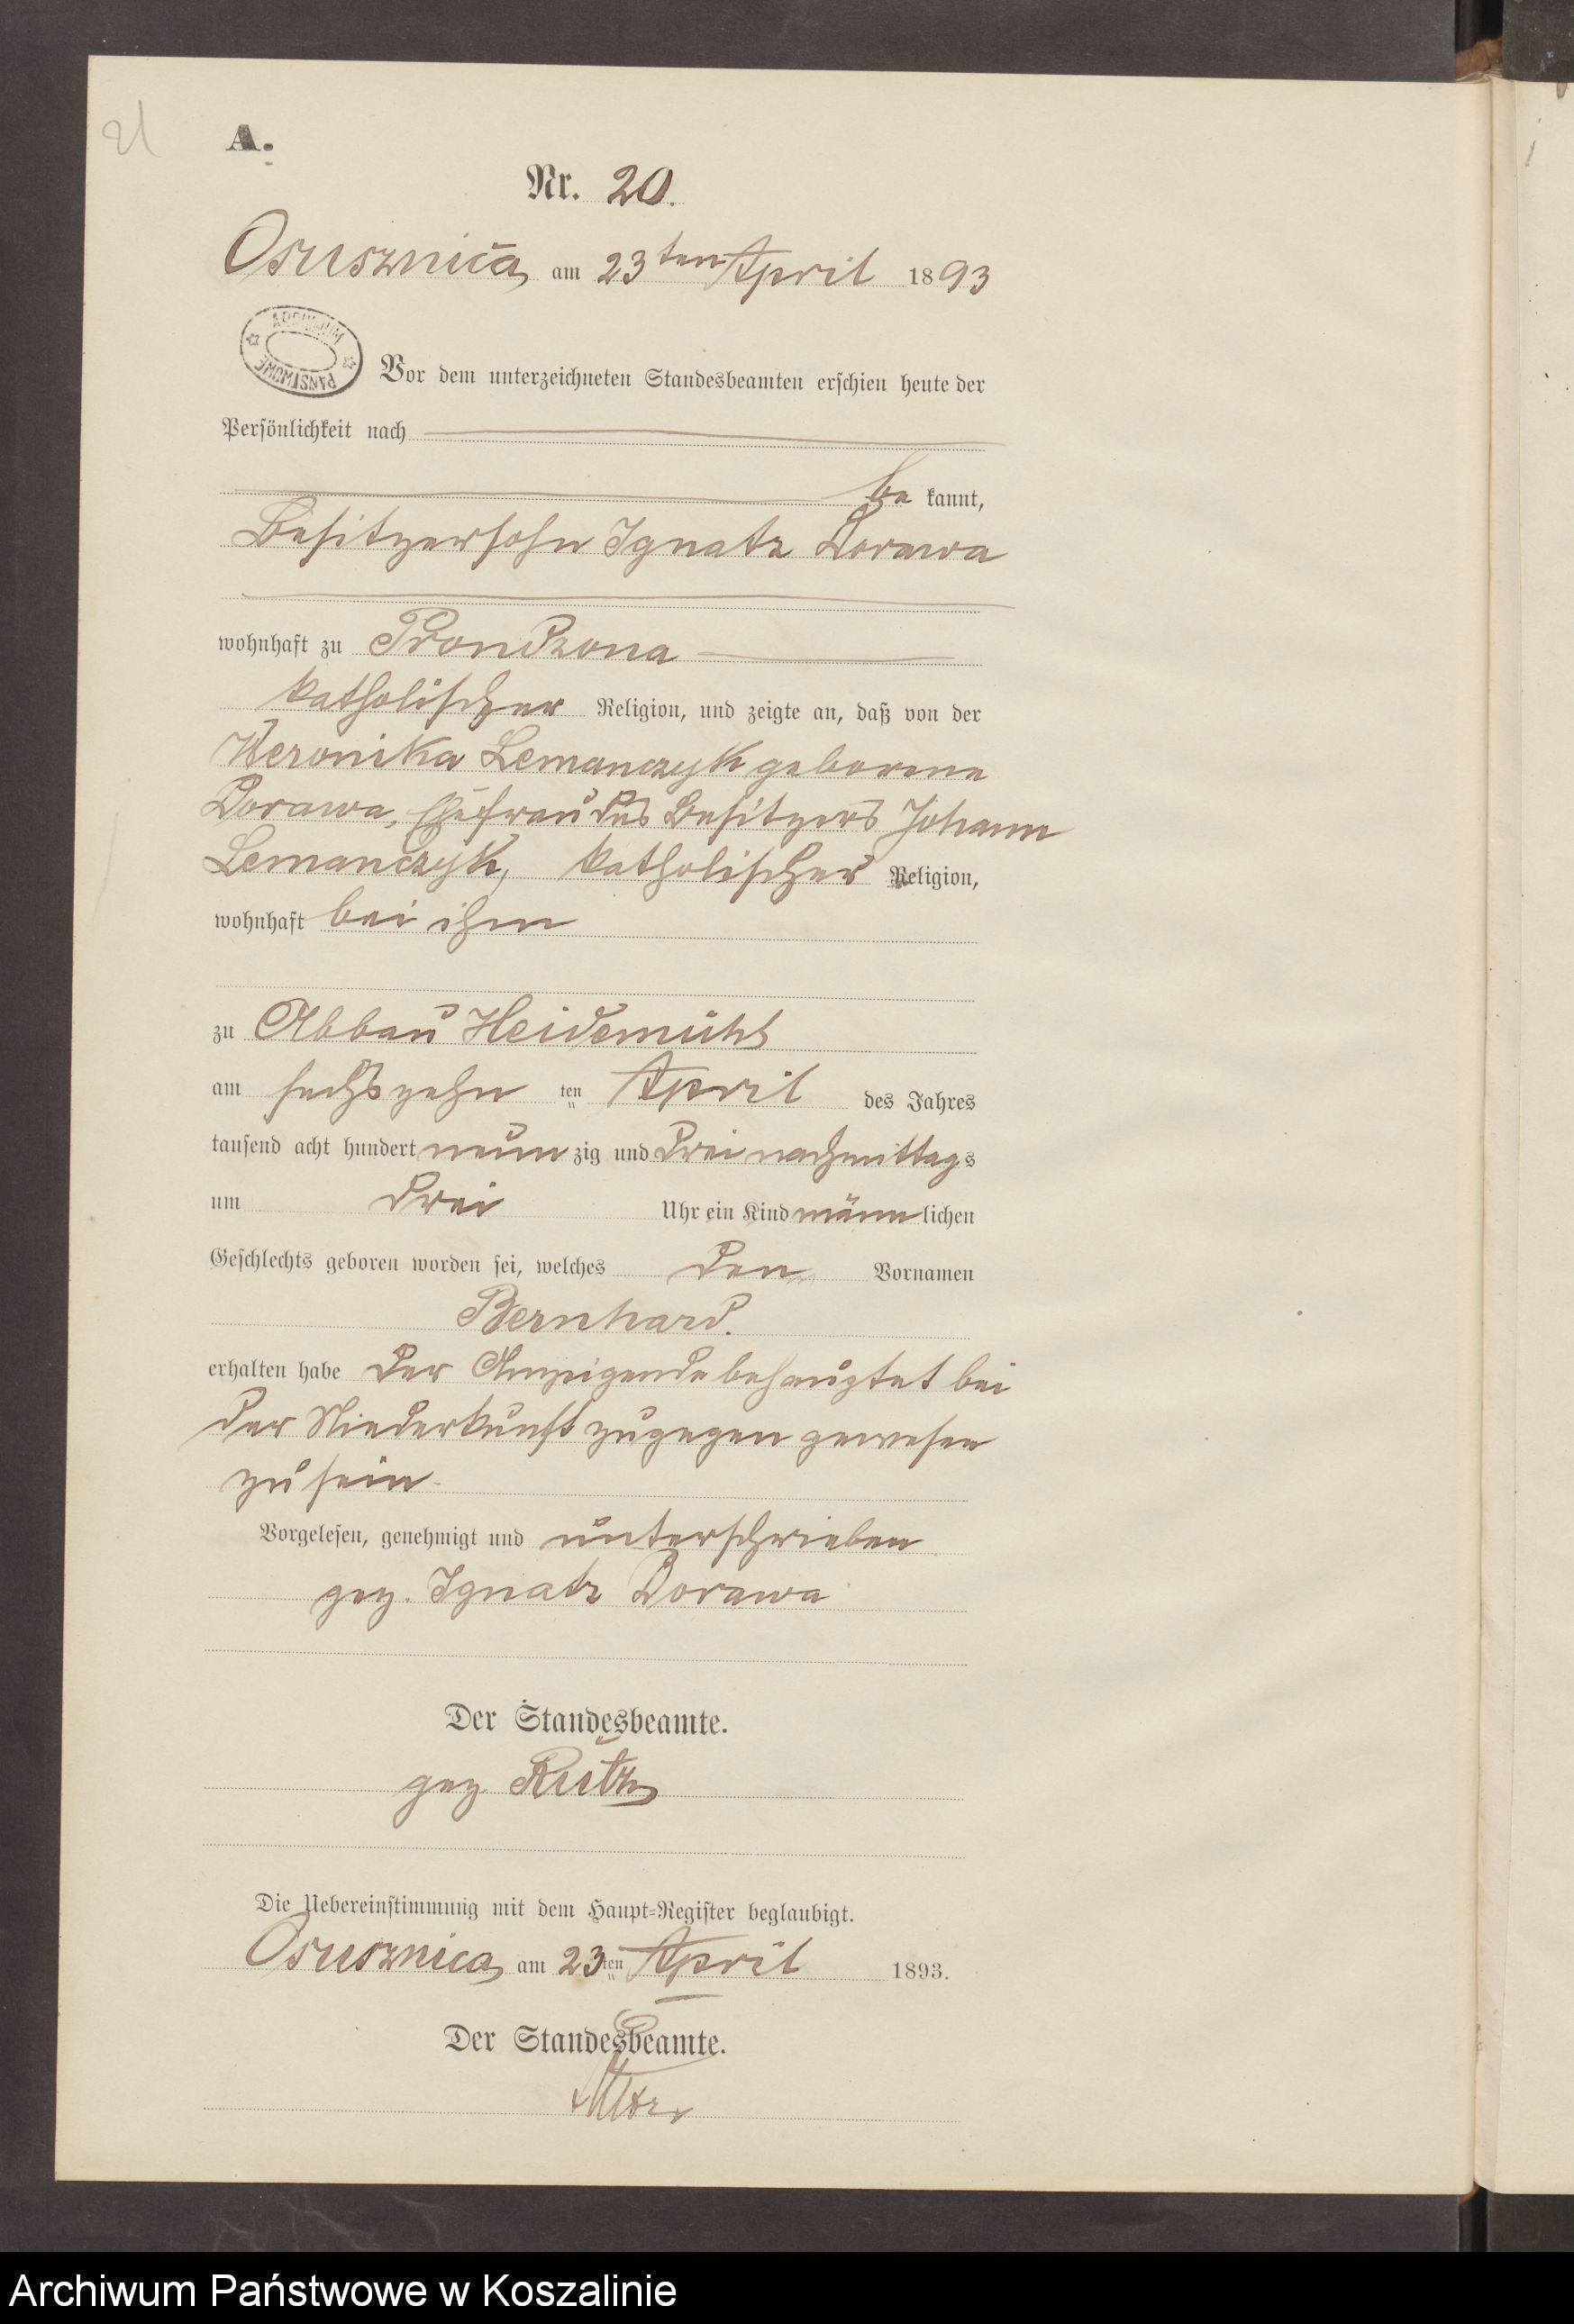 21
A.
Nr. 20.
Osusznica, am 23ten April 1893
ARCHIWUM PAŃSTWOWE
Vor dem unterzeichneten Standesbeamten erschien heute der
Persönlichkeit nach
be kannt,
Besitzersohn Ignatz Dorawa
wohnhaft zu Prondzona
katholischer Religion, und zeigte an, daß von der
Weronika Lemanczyk geborene
Dorawa, Ehefrau des Besitzers Johann
Lemanczyk, katholischer Religion,
wohnhaft bei ihm
zu Abbau Heidemühl
am sechszehn ten April des Jahres
tausend acht hundert neun zig und drei nachmittags
um drei Uhr ein Kind männ lichen
Geschlechts geboren worden sei, welches den Vornamen
Bernhard.
erhalten habe Der Anzeigende behauptet bei
der Niederkunft zugegen gewesen
zu sein.
Vorgelesen, genehmigt und unterschrieben
gez. Ignatz Dorawa
Der Standesbeamte.
gez Rutz
Die Uebereinstimmung mit dem Haupt-Register beglaubigt.
Osusznica, am 23ten April 1893.
Der Standesbeamte.
Archiwum Państwowe w Koszalinie